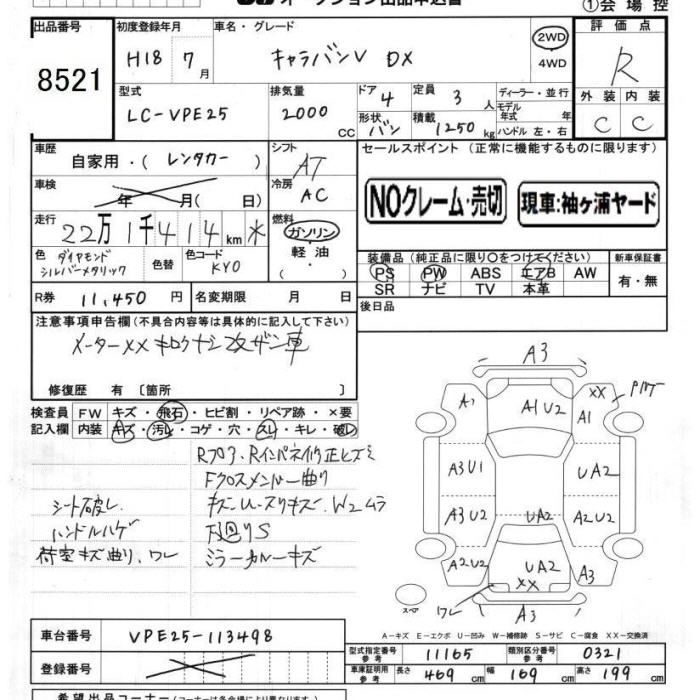 オークション出品申込書
①会場控
出品番号 8521
初度登録年月 H18 7月
車名・グレード キャラバンV DX
2WD
4WD
評価点 R
型式 LC-VPE25
排気量 2000 CC
ドア 4
形状 バン
定員 3人
積載 1250kg
ディーラー・並行
モデル年式 年式
ハンドル 左・右
外装 C
内装 C
車歴 自家用・(レンタカー)
シフト AT
セールスポイント (正常に機能するものに限ります)
車検 年 月(日)
冷房 AC
NOクレーム・売切
現車:袖ヶ浦ヤード
走行 22万1千414km*
燃料 ガソリン
軽油
( )
色 ダイヤモンドシルバーメタリック
色替
色コード KY0
装備品 (純正品に限り○をつけてください)
新車保証書
PS PW ABS エアB AW
SR ナビ TV 本革
有・無
R券 11,450円
名変期限 月 日
後日品
注意事項申告欄 (不具合内容等は具体的に記入して下さい)
メーター×× キロクナシ 改ザン車
修復歴 有 〔箇所 〕
検査員 FW キズ・飛石・ヒビ割・リペア跡・×要
記入欄 内装 キズ・汚レ・コゲ・穴・スレ・キレ・破レ
Rフロア.Rインパネ修正ヒズミ
Fクロスメンバー曲り
キズ・U・スリキズ.W2ムラ
下廻りS
ミラーカバーキズ
シート破レ
ハンドルハゲ
荷室キズ曲り,ワレ
A3
A1
A1U2
XX
A1
A3U1
UA2
A3U2
UA2
A2U2
A2U2
UA2
XX
A3
ワレ
A3
スペア
A-キズ E-エクボ U-凹み W-補修跡 S-サビ C-腐食 XX-交換済
車台番号 VPE25-113498
登録番号
型式指定番号 参考 11165
類別区分番号 参考 0321
車庫証明用 参考 長さ 469cm 幅 169cm 高さ 199cm
希望出品コーナー